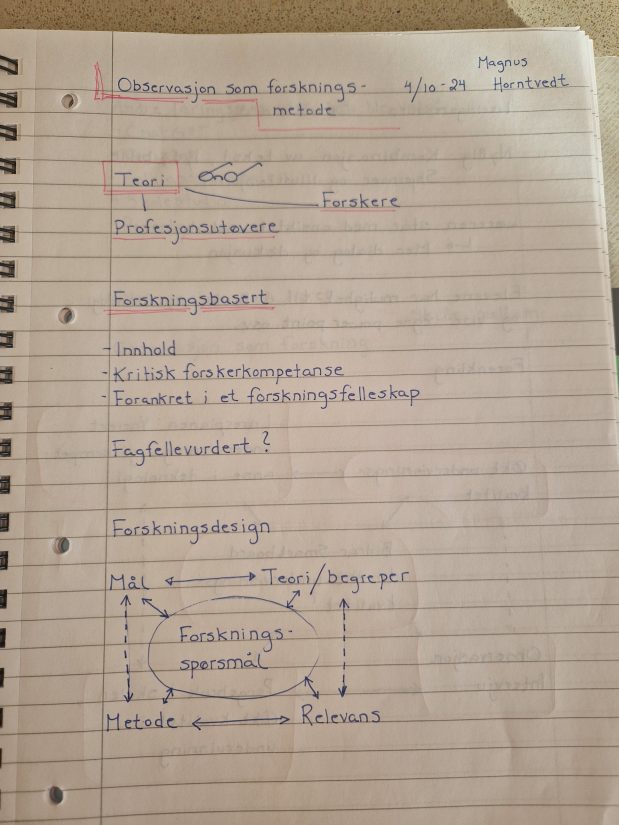 Magnus
Observasjon som forsknings- 4/10-24 Horntvedt
metode
Teori
Forskere
Profesjonsutøvere
Forskningsbasert
- Innhold
- Kritisk forskerkompetanse
- Forankret i et forskningsfelleskap
Fagfellevurdert?
Forskningsdesign
Mål Teori/begreper
Forsknings-
spørsmål
Metode Relevans